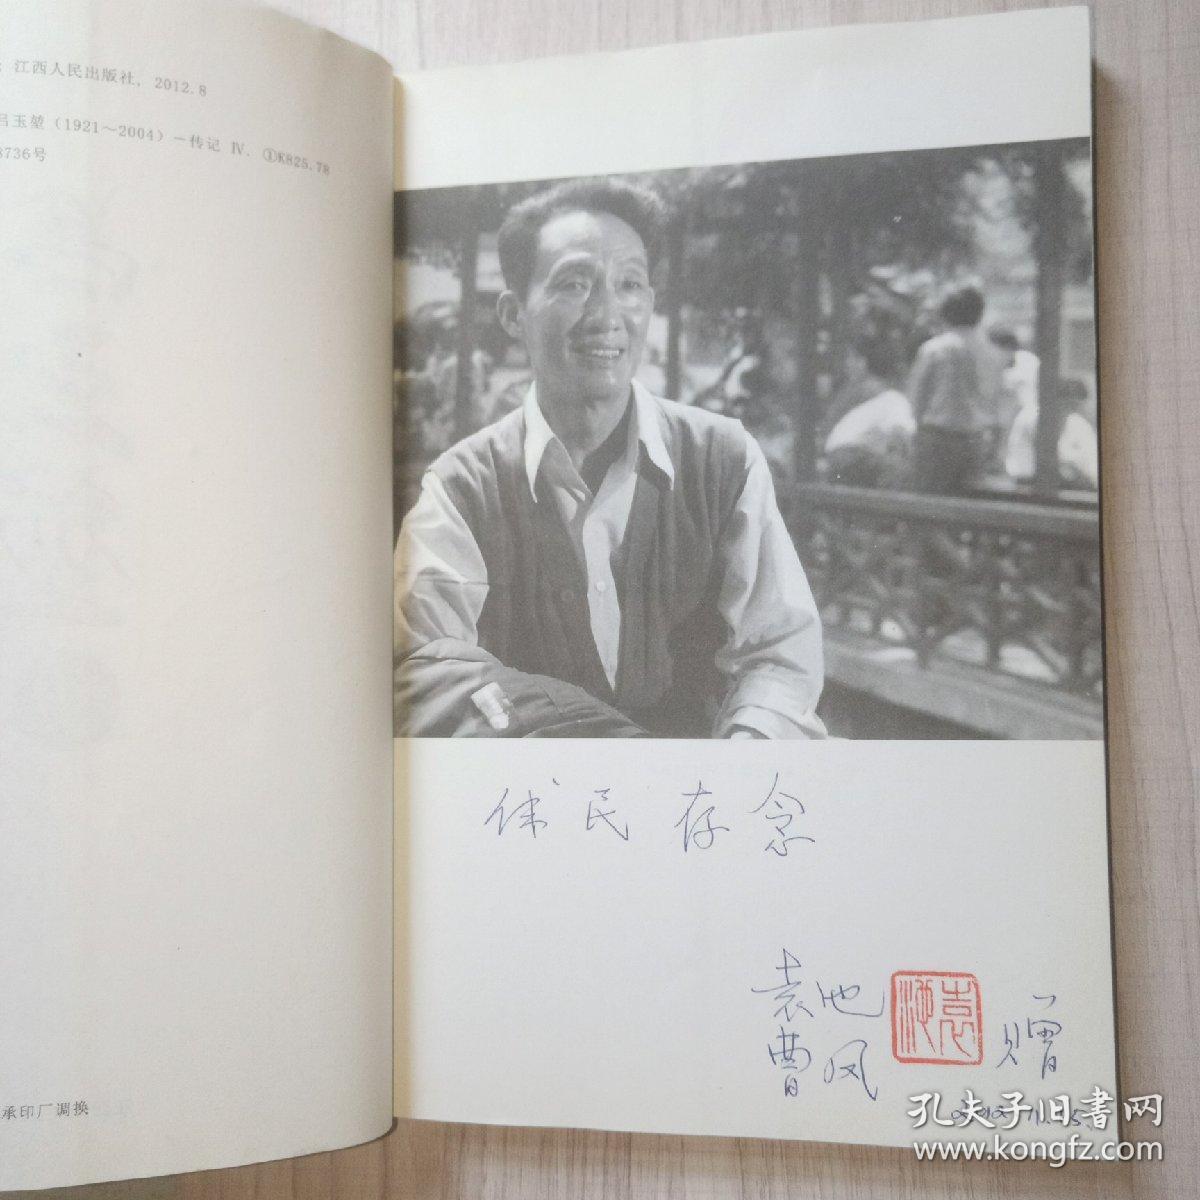 : 江西人民出版社, 2012.8
吕玉堃 (1921～2004) －传记 Ⅳ. ①K825.78
8736号
承印厂调换
民存念
袁池
曹凤
赠
袁池
孔夫子旧书网
www.kongfz.com